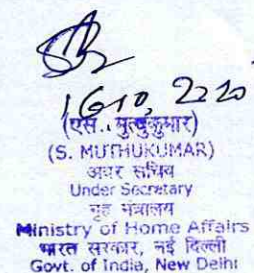 16/10, 2020
(एस. मुत्थुकुमार)
(S. MUTHUKUMAR)
अवर सचिव
Under Secretary
गृह मंत्रालय
Ministry of Home Affairs
भारत सरकार, नई दिल्ली
Govt. of India, New Delhi